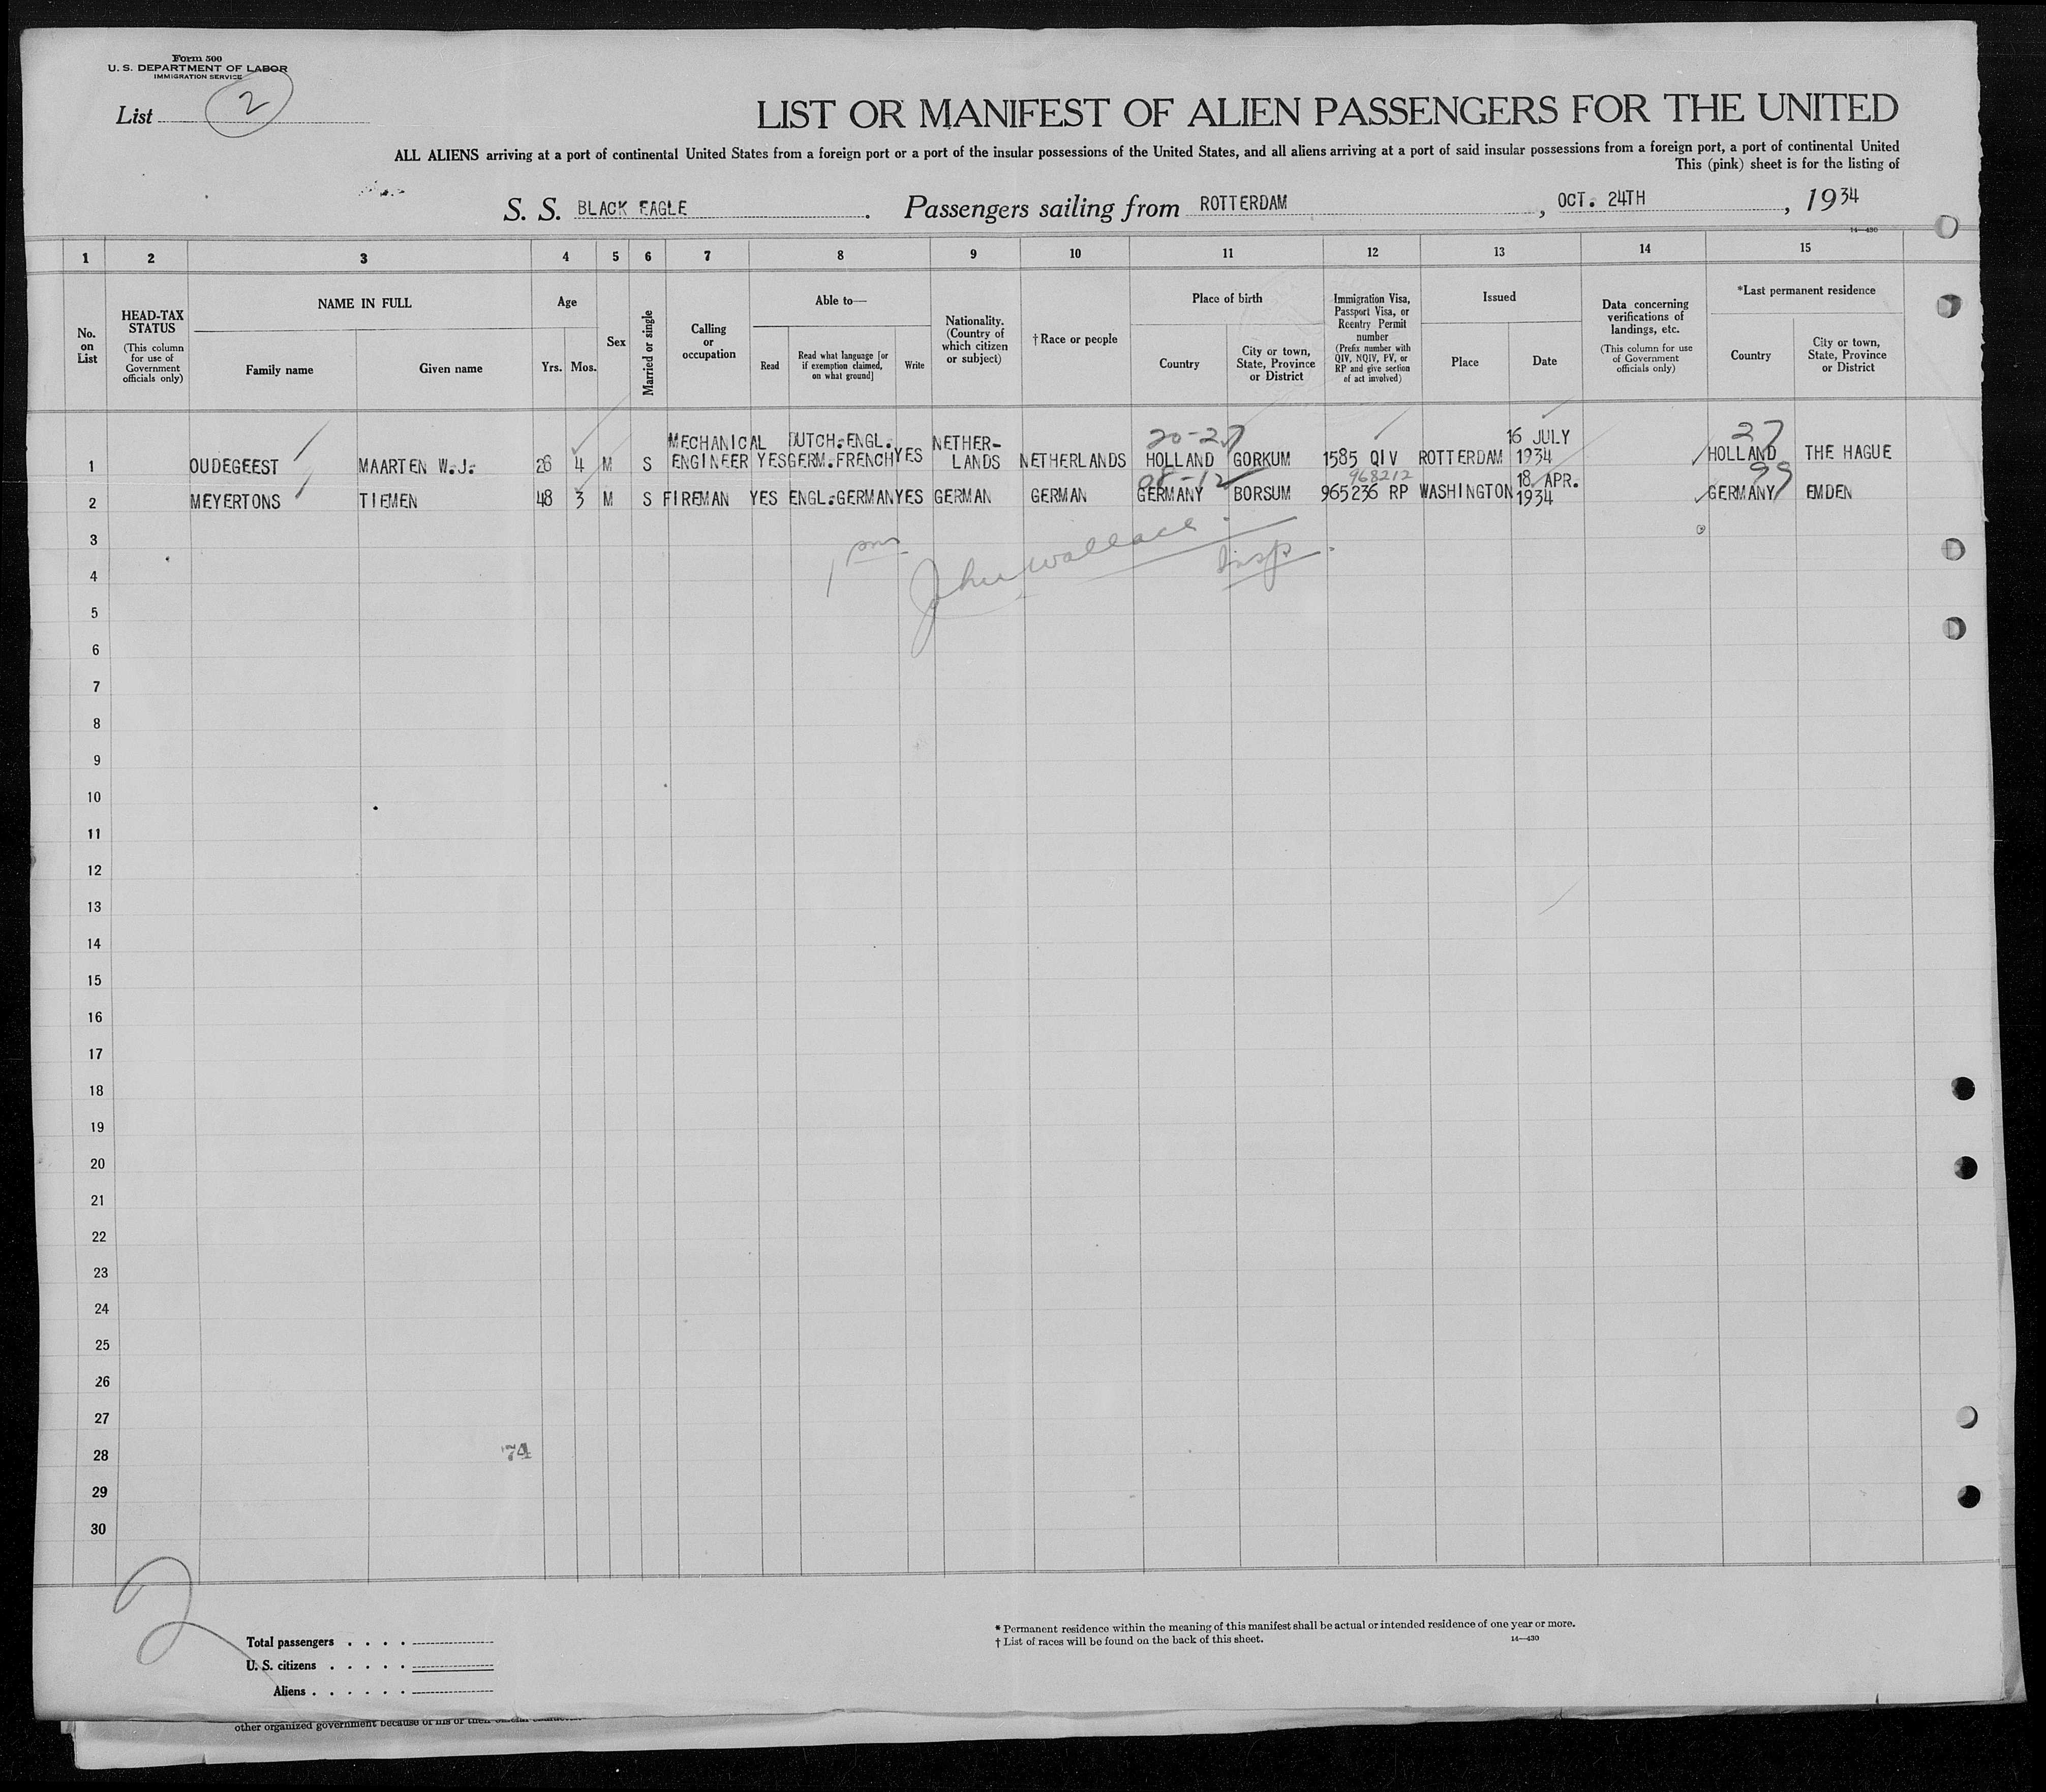 Form 500
U. S. DEPARTMENT OF LABOR
IMMIGRATION SERVICE
List 2
LIST OR MANIFEST OF ALIEN PASSENGERS FOR THE UNITED
ALL ALIENS arriving at a port of continental United States from a foreign port or a port of the insular possessions of the United States, and all aliens arriving at a port of said insular possessions from a foreign port, a port of continental United
This (pink) sheet is for the listing of
S. S. BLACK EAGLE. Passengers sailing from ROTTERDAM, OCT. 24TH, 1934
14—430
1 2 3 4 5 6 7 8 9 10 11 12 13 14 15
No. on List
HEAD-TAX STATUS
(This column for use of Government officials only)
NAME IN FULL
Family name Given name
Age
Yrs. Mos.
Sex
Married or single
Calling or occupation
Able to—
Read
Read what language [or if exemption claimed, on what ground]
Write
Nationality. (Country of which citizen or subject)
†Race or people
Place of birth
Country
City or town, State, Province or District
Immigration Visa, Passport Visa, or Reentry Permit number
(Prefix number with QIV, NQIV, PV, or RP and give section of act involved)
Issued
Place Date
Data concerning verifications of landings, etc.
(This column for use of Government officials only)
*Last permanent residence
Country
City or town, State, Province or District
MECHANICAL DUTCH.ENGL. NETHER- 20-27 16 JULY 27
1 OUDEGEEST MAARTEN W.J. 26 4 M S ENGINEER YES GERM.FRENCH YES LANDS NETHERLANDS HOLLAND GORKUM 1585 QIV ROTTERDAM 1934 HOLLAND THE HAGUE
08-12 968212 18 APR. 99
2 MEYERTONS TIEMEN 48 3 M S FIREMAN YES ENGL.GERMAN YES GERMAN GERMAN GERMANY BORSUM 965236 RP WASHINGTON 1934 GERMANY EMDEN
3
1 pm John Wallace Insp.
4
5
6
7
8
9
10
11
12
13
14
15
16
17
18
19
20
21
22
23
24
25
26
27
28 74
29
30
2
Total passengers . . . .
U. S. citizens . . . . .
Aliens . . . . . .
* Permanent residence within the meaning of this manifest shall be actual or intended residence of one year or more.
† List of races will be found on the back of this sheet. 14—430
other organized government because of his or their official